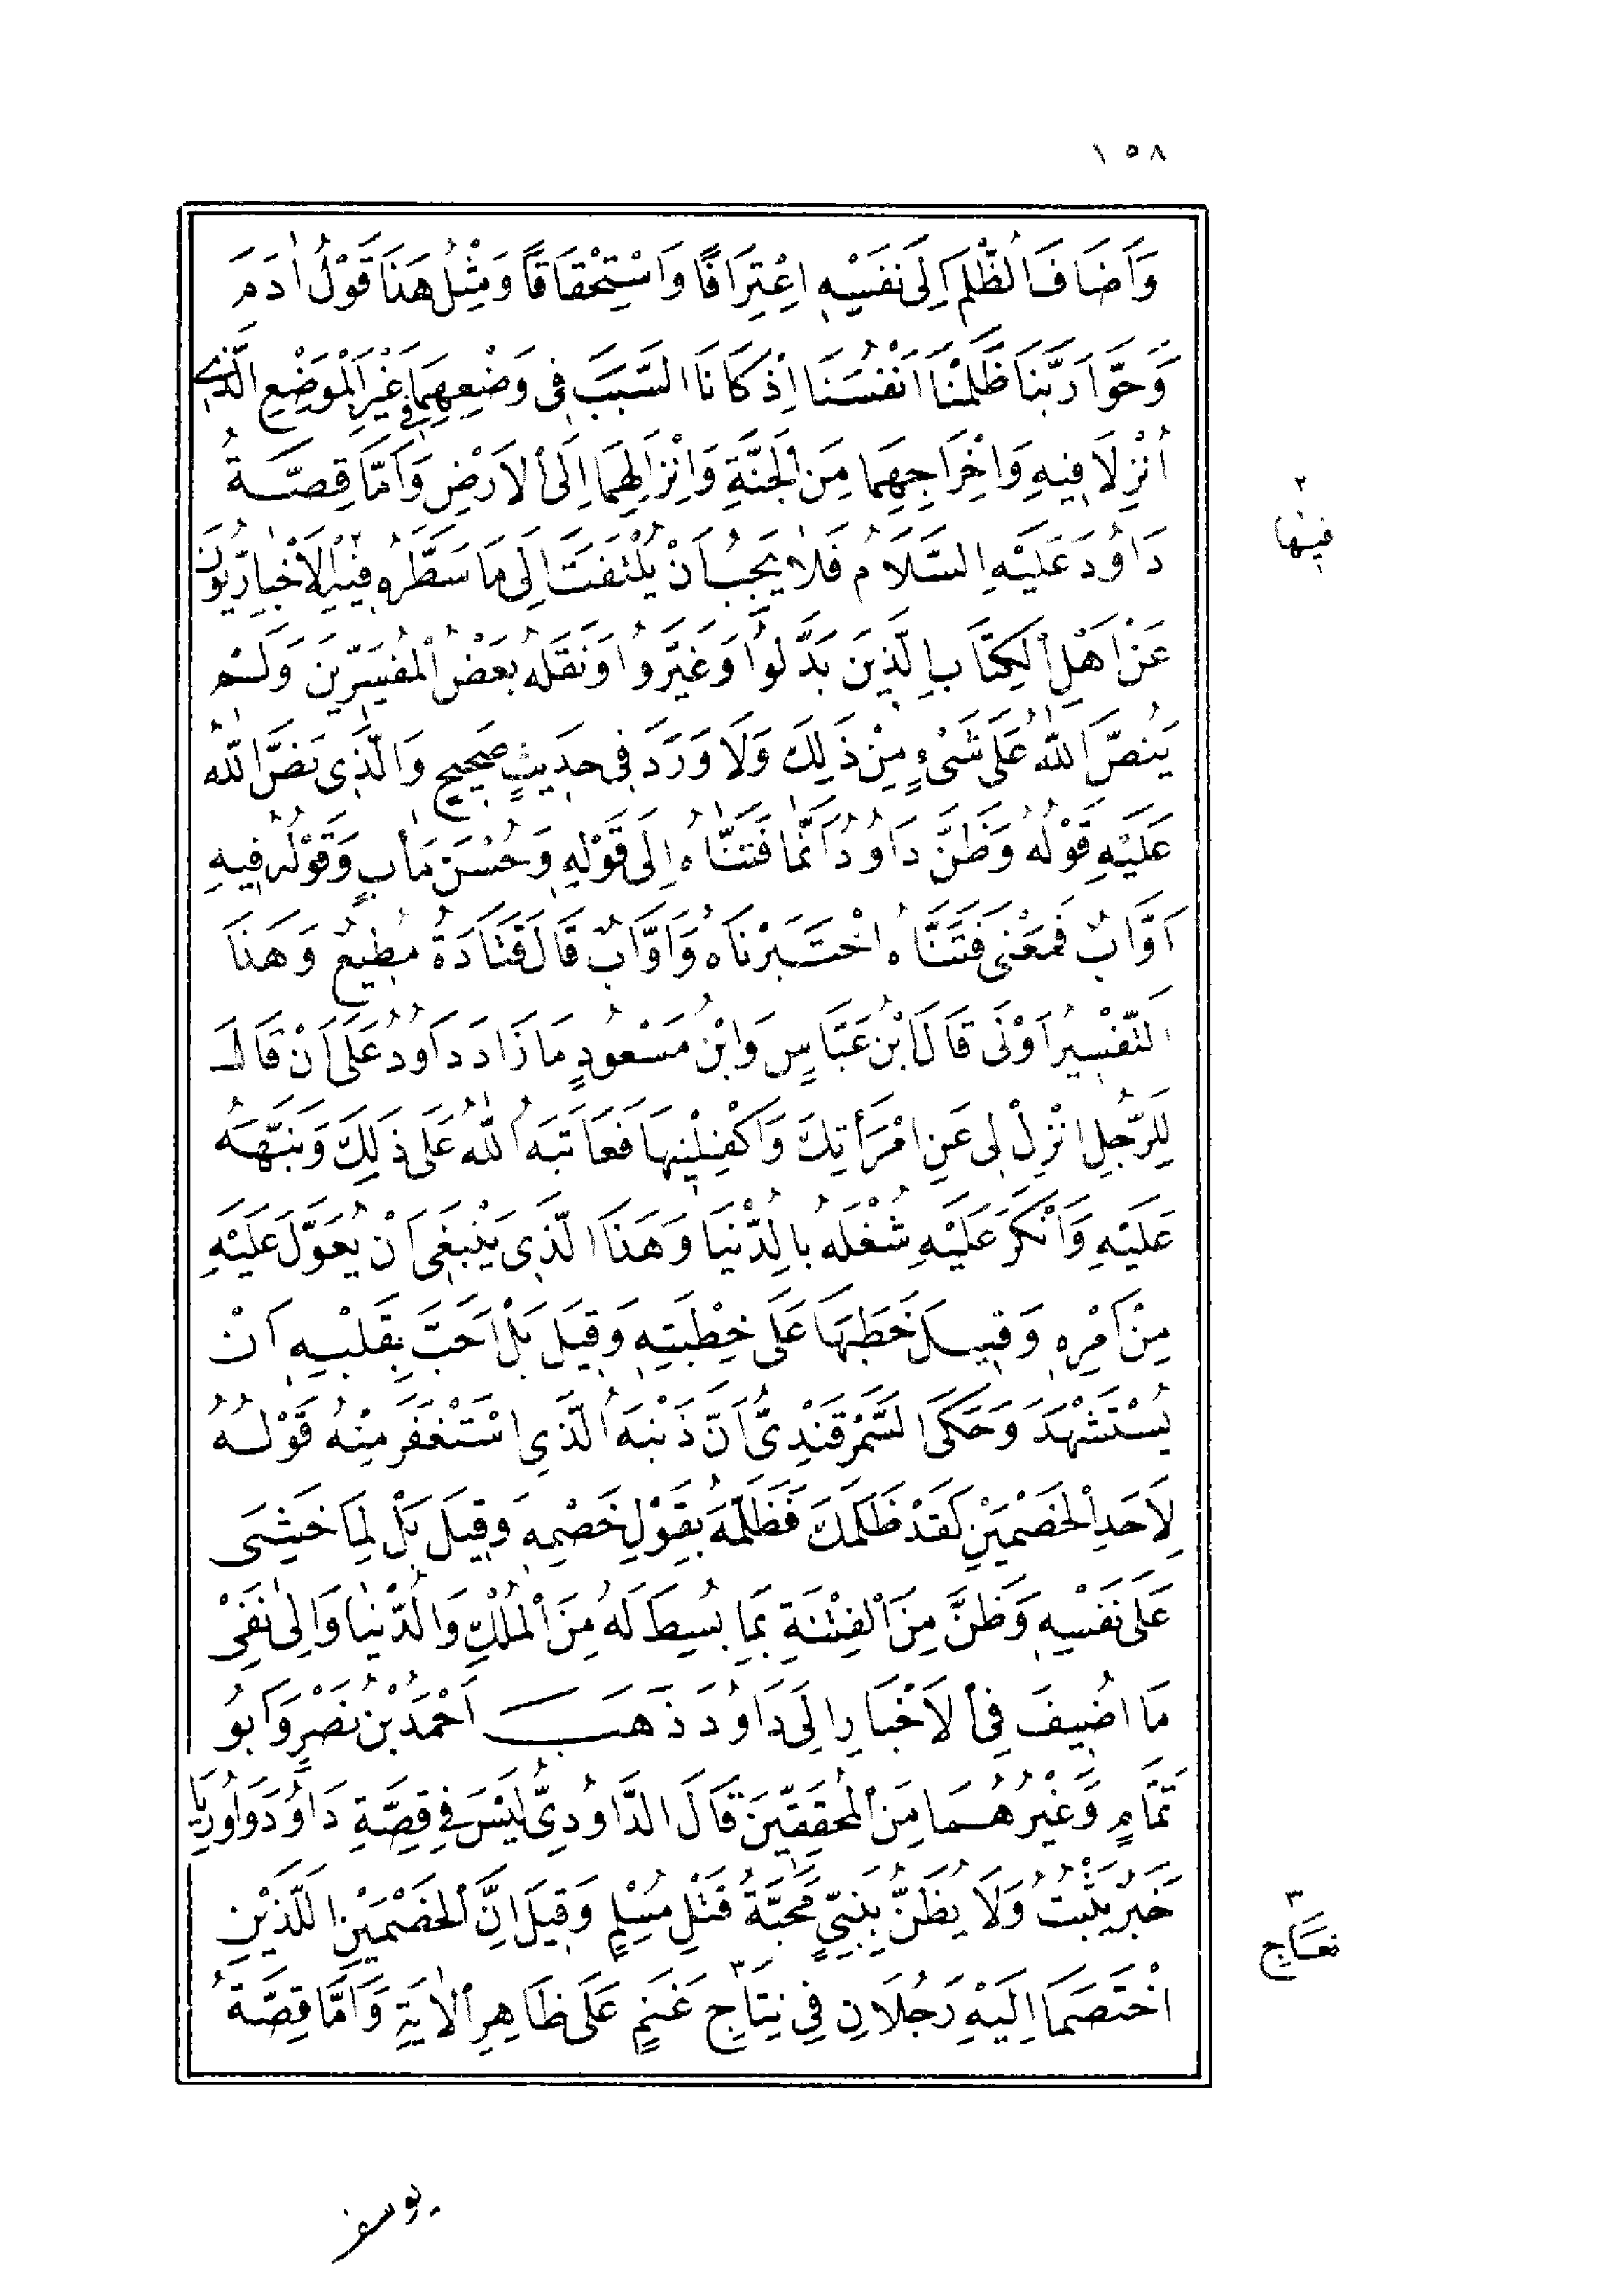 ١٥٨
وَاَضَافَ الظُّلْمَ اِلَى نَفْسِهِ اِعْتِرَافًا وَاسْتِحْقَاقًا وَمِثْلُ هَذَا قَوْلُ اٰدَمَ
وَحَوَّا رَبَّنَا ظَلَمْنَا اَنْفُسَنَا اِذْ كَانَا السَّبَبَ فِى وَضْعِهِمَا فِى غَيْرِ الْمَوْضِعِ الَّذِى
اُنْزِلَا فِيهِ وَاِخْرَاجِهِمَا مِنَ الْجَنَّةِ وَاِنْزَالِهِمَا اِلَى الْاَرْضِ وَاَمَّا قِصَّةُ
دَاوُدَ عَلَيْهِ السَّلَامُ فَلَا يَجِبُ اَنْ يُلْتَفَتَ اِلَى مَا سَطَّرَهُ فِيهِ٢ الْاَخْبَارِيُّونَ
٢
فِيهَا
عَنْ اَهْلِ الْكِتَابِ الَّذِينَ بَدَّلُوا وَغَيَّرُوا وَنَقَلَهُ بَعْضُ الْمُفَسِّرِينَ وَلَمْ
يَنُصَّ اللّٰهُ عَلَى شَىْءٍ مِنْ ذَلِكَ وَلَا وَرَدَ فِى حَدِيثٍ صَحِيحٍ وَالَّذِى نَصَّ اللّٰهُ
عَلَيْهِ قَوْلُهُ وَظَنَّ دَاوُدُ اَنَّمَا فَتَنَّاهُ اِلَى قَوْلِهِ وَحُسْنَ مَاٰبٍ وَقَوْلُهُ فِيهِ
اَوَّابٌ فَمَعْنَى فَتَنَّاهُ اخْتَبَرْنَاهُ وَاَوَّابٌ قَالَ قَتَادَةُ مُطِيعٌ وَهَذَا
التَّفْسِيرُ اَوْلَى قَالَ ابْنُ عَبَّاسٍ وَابْنُ مَسْعُودٍ مَا زَادَ دَاوُدُ عَلَى اَنْ قَالَ
لِلرَّجُلِ انْزِلْ لِى عَنِ امْرَأَتِكَ وَاَكْفِلْنِيهَا فَعَاتَبَهُ اللّٰهُ عَلَى ذَلِكَ وَنَبَّهَهُ
عَلَيْهِ وَاَنْكَرَ عَلَيْهِ شُغْلَهُ بِالدُّنْيَا وَهَذَا الَّذِى يَنْبَغِى اَنْ يُعَوَّلَ عَلَيْهِ
مِنْ اَمْرِهِ وَقِيلَ خَطَبَهَا عَلَى خِطْبَتِهِ وَقِيلَ بَلْ اَحَبَّ بِقَلْبِهِ اَنْ
يُسْتَشْهَدَ وَحَكَى السَّمَرْقَنْدِىُّ اَنَّ ذَنْبَهُ الَّذِى اسْتَغْفَرَ مِنْهُ قَوْلُهُ
لِاَحَدِ الْخَصْمَيْنِ لَقَدْ ظَلَمَكَ فَظَلَّمَهُ بِقَوْلِ خَصْمِهِ وَقِيلَ بَلْ لِمَا خَشِىَ
عَلَى نَفْسِهِ وَظَنَّ مِنَ الْفِتْنَةِ بِمَا بُسِطَ لَهُ مِنَ الْمُلْكِ وَالدُّنْيَا وَاِلَى نَفْىِ
مَا اُضِيفَ فِى الْاَخْبَارِ اِلَى دَاوُدَ ذَهَبَ اَحْمَدُ بْنُ نَصْرٍ وَاَبُو
تَمَّامٍ وَغَيْرُهُمَا مِنَ الْمُحَقِّقِينَ قَالَ الدَّاوُدِىُّ لَيْسَ فِى قِصَّةِ دَاوُدَ وَاُورِيَا
خَبَرٌ يَثْبُتُ وَلَا يُظَنُّ بِنَبِيٍّ مَحَبَّةُ قَتْلِ مُسْلِمٍ وَقِيلَ اِنَّ الْخَصْمَيْنِ اللَّذَيْنِ
٣
نِعَاجِ
اخْتَصَمَا اِلَيْهِ رَجُلَانِ فِى نِتَاجِ٣ غَنَمٍ عَلَى ظَاهِرِ الْاٰيَةِ وَاَمَّا قِصَّةُ
يوسف